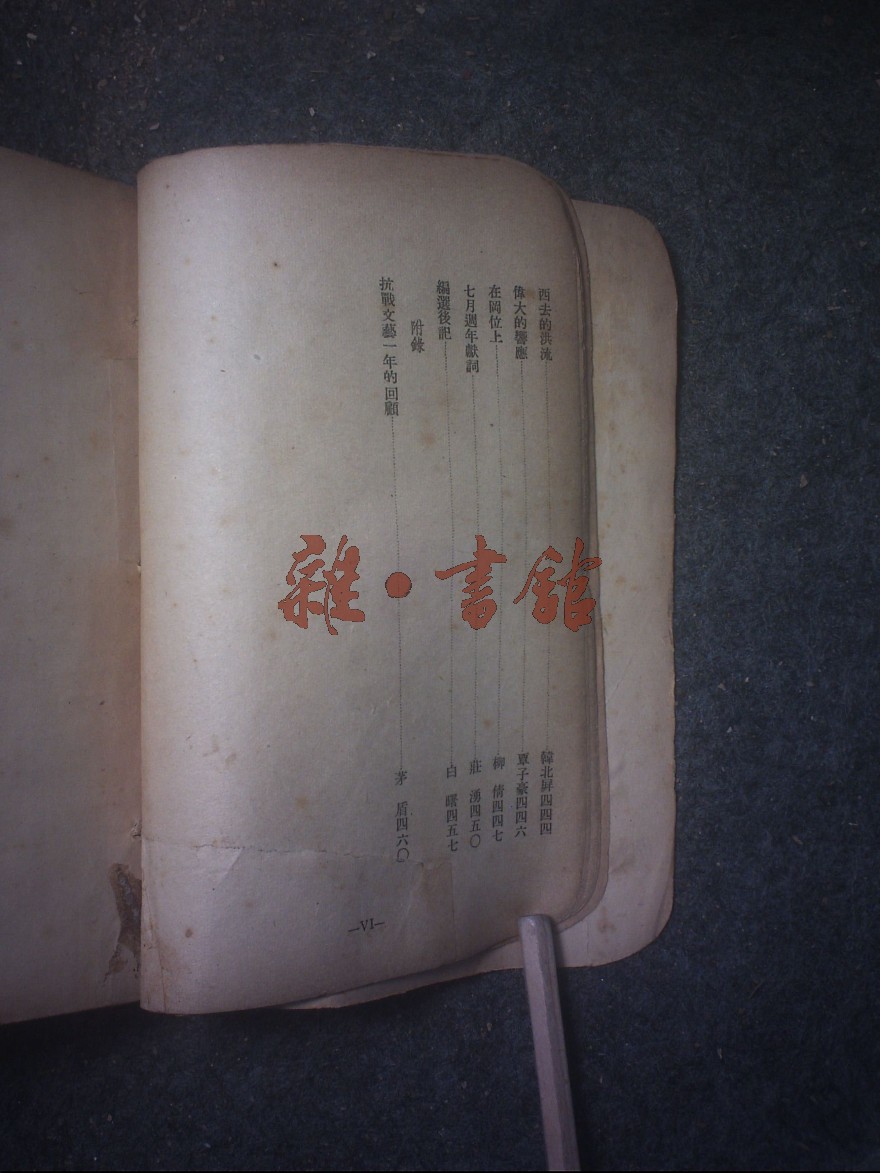 西去的洪流……韓北屏四四四
偉大的響應……覃子豪四四六
在岡位上……柳倩四四七
七月週年獻詞……莊湧四五〇
編選後記……白曙四五七
附錄
抗戰文藝一年的回顧……茅盾四六〇
—VI—
雜·書館